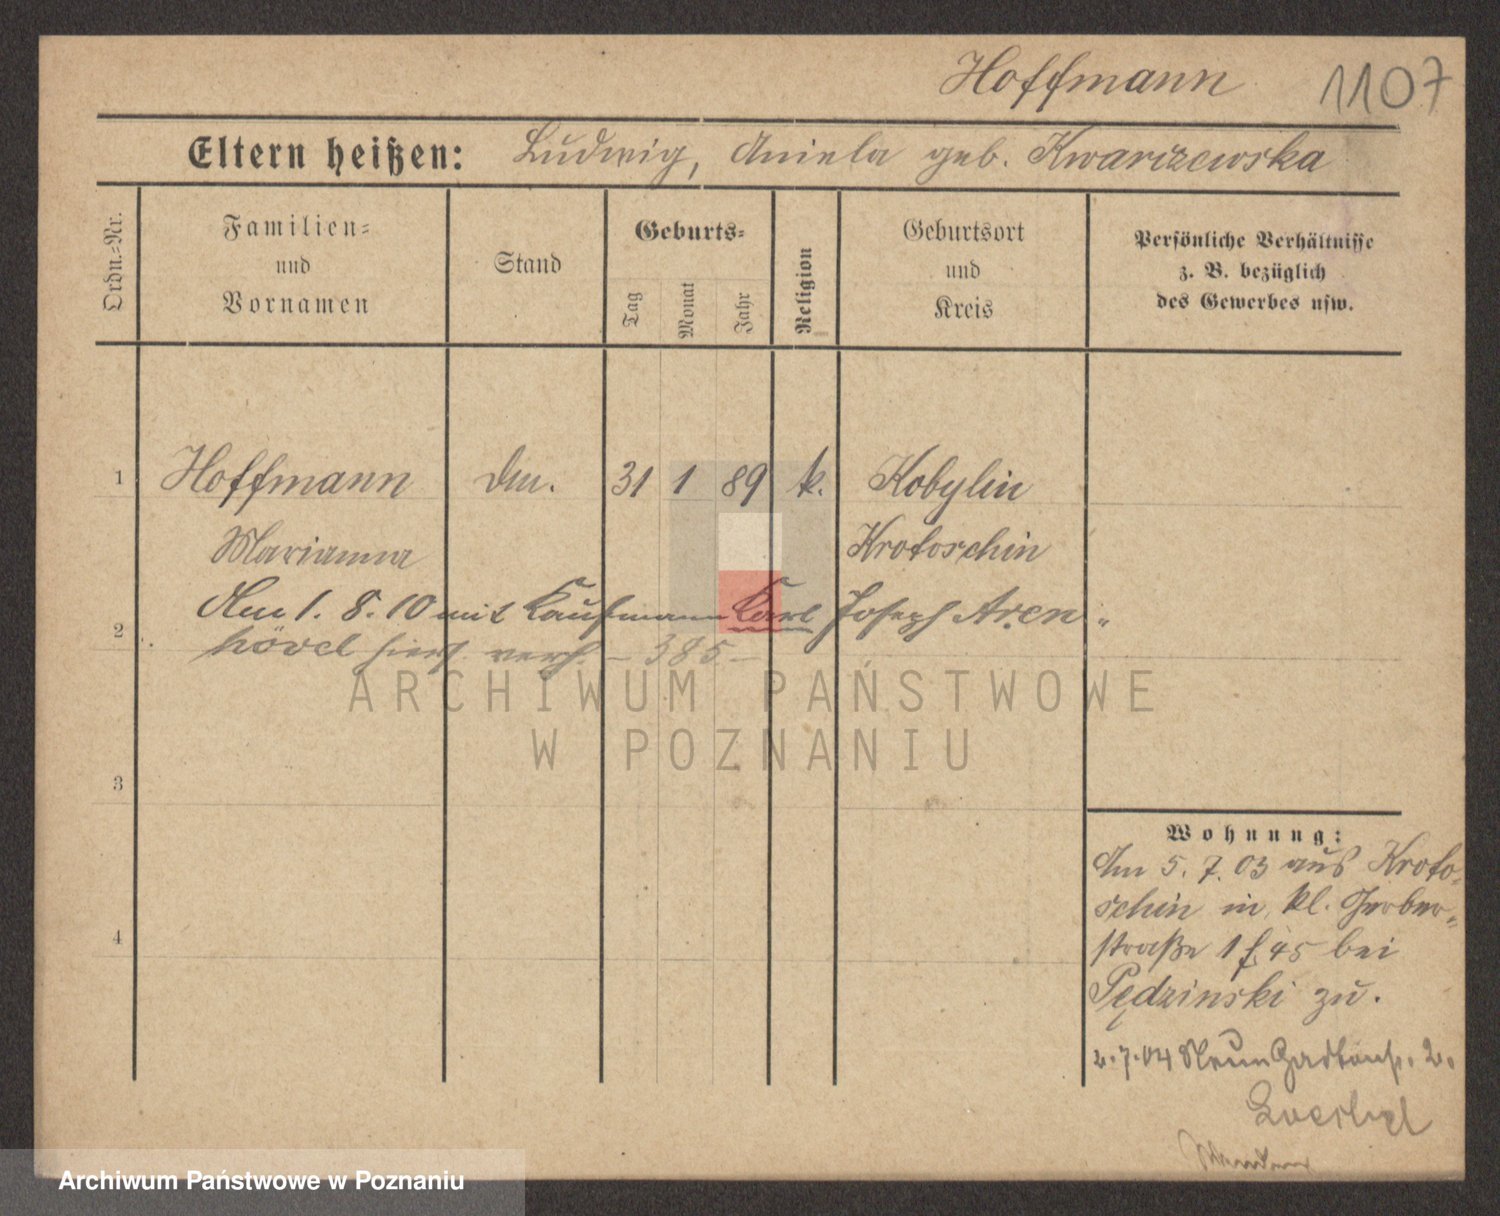 Hoffmann 1107
Eltern heißen: Ludwig, Aniela geb. Kwarczewska
Ordn.=Nr.
Familien=
und
Vornamen
Stand
Geburts=
Tag
Monat
Jahr
Religion
Geburtsort
und
Kreis
Persönliche Verhältnisse
z. B. bezüglich
des Gewerbes usw.
1 Hoffmann 31 1 89 k. Kobylin
Marianna Krotoschin
Am 1. 8. 10 mit Kaufmann Karl Joseph Aren-
2 hövel hiers. verh. – 385 –
ARCHIWUM PAŃSTWOWE
W POZNANIU
3
4
Wohnung:
Am 5. 7. 03 aus Kroto-
schin in kl. Gerber-
straße 1 f. 45 bei
Pędzinski zu.
2. 7. 04 2.
Archiwum Państwowe w Poznaniu